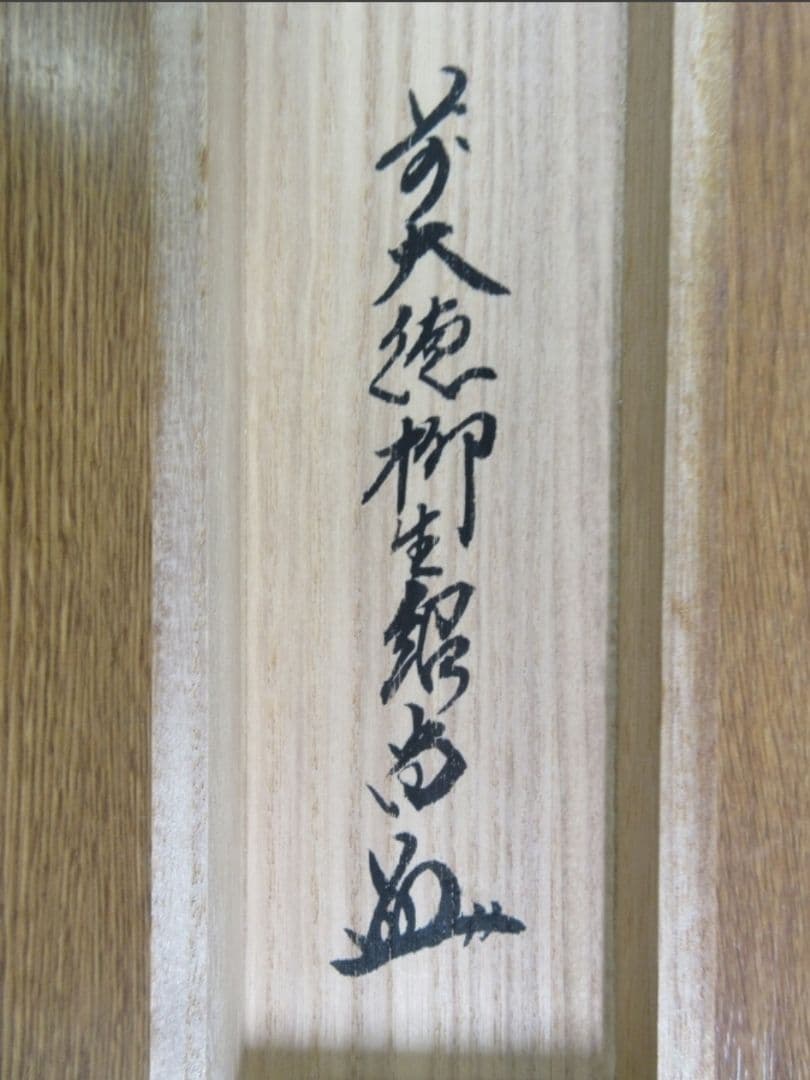 前大徳柳生紹尚